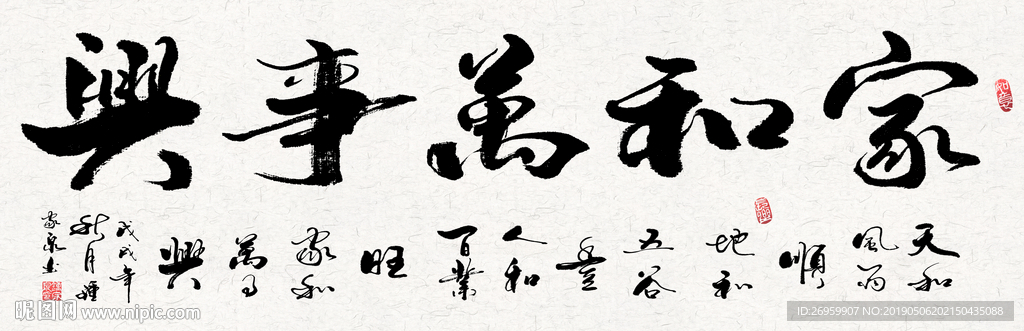 家和萬事興
如意
天和
風雨
順
地和
五谷
豐
人和
百業
旺
家和
萬事
興
戊戌年
秋月
家泉书
昵图网
www.nipic.com
ID:26959907 NO:20190506202150435088